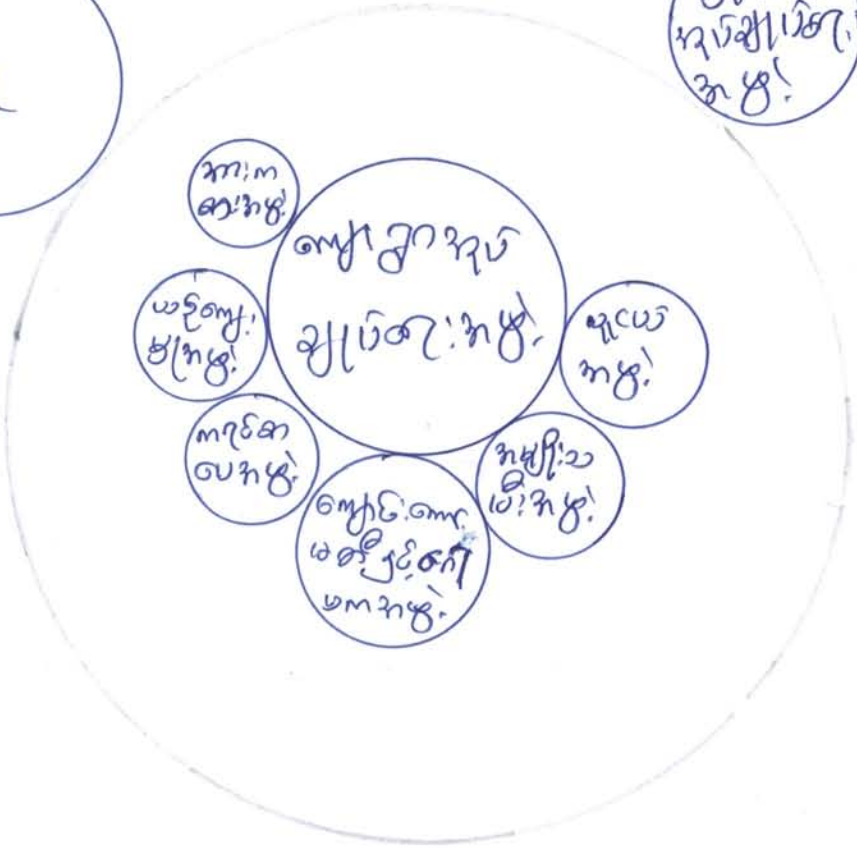 အုပ်ချုပ်ရေး
အဖွဲ့
အားက
စားအဖွဲ့
ကျေးရွာအုပ်
ချုပ်ရေးအဖွဲ့
ယဉ်ကျေး
မှုအဖွဲ့
လူငယ်
အဖွဲ့
ကရင်စာ
ပေအဖွဲ့
အမျိုးသ
မီးအဖွဲ့
ကျောင်းကော်
မတီနှင့်ဂေါ
ပကအဖွဲ့